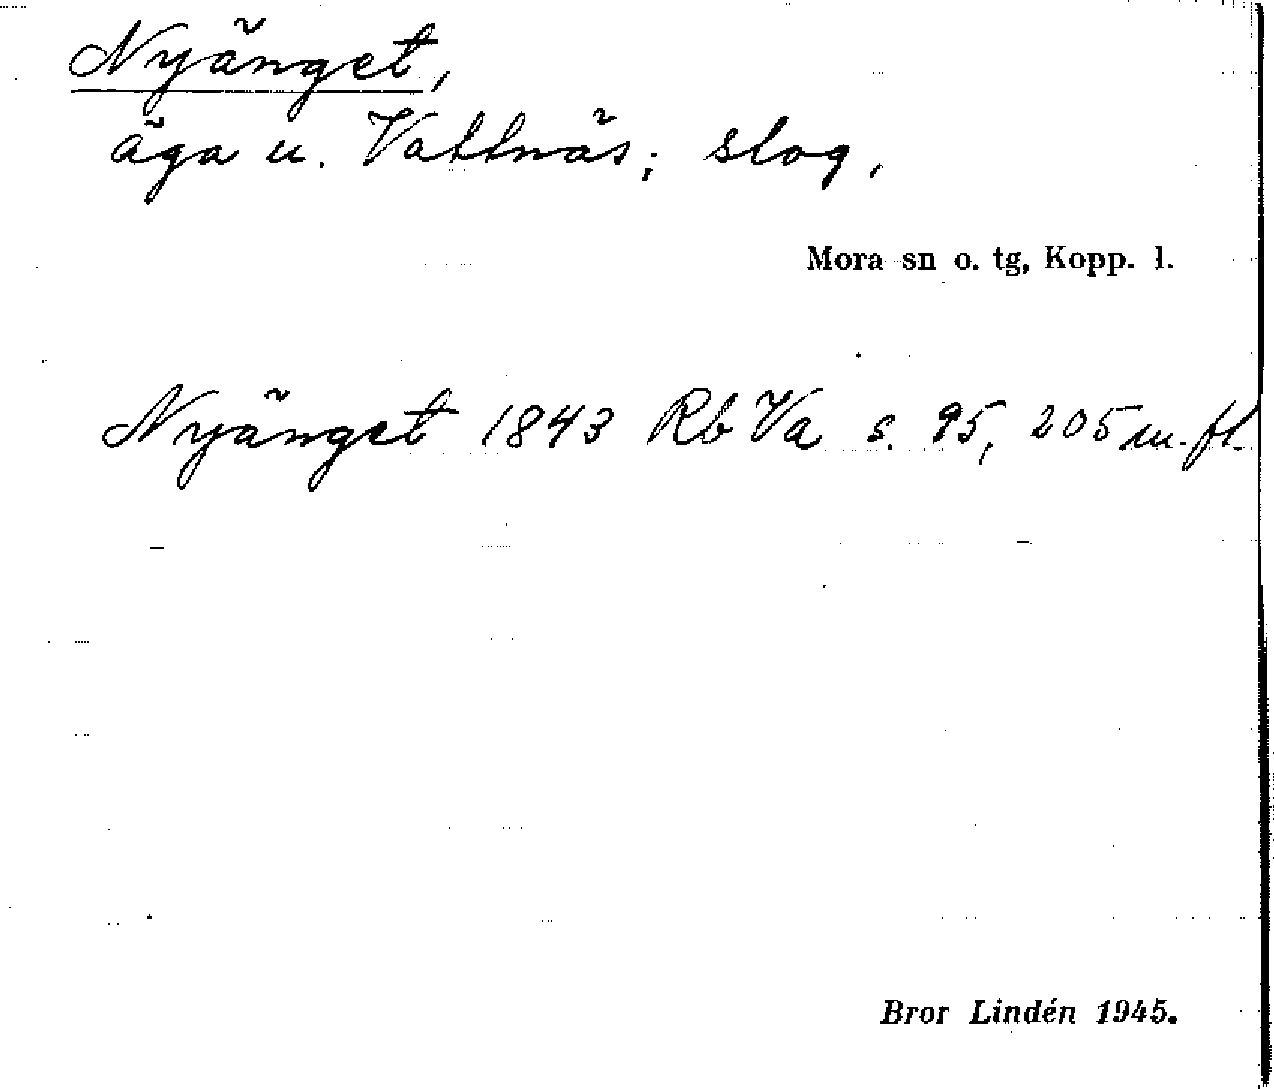 Nyänget,
äga u. Vattnäs; slog.
Mora sn o. tg, Kopp. l.
Nyänget 1843 Rb Va s. 95, 205 m. fl.
Bror Lindén 1945.